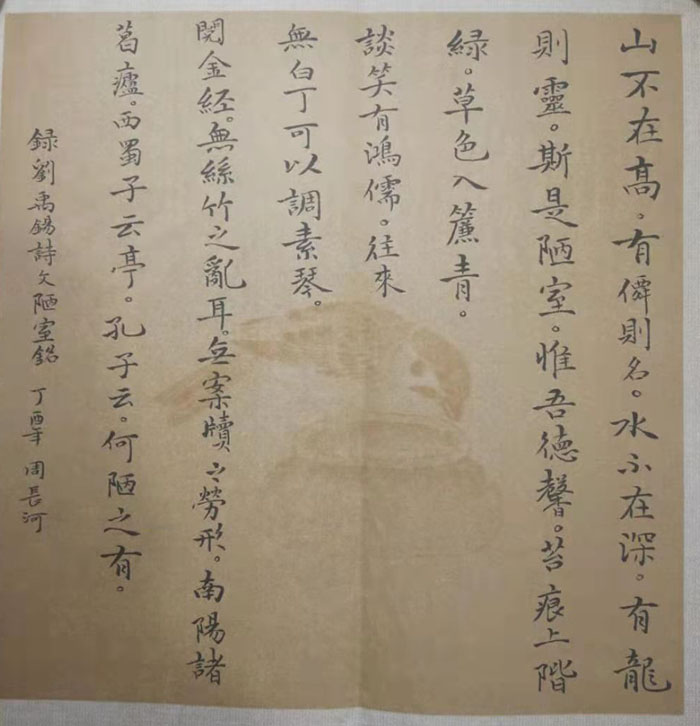 山不在高。有僊則名。水不在深。有龍
則靈。斯是陋室。惟吾德馨。苔痕上階
緑。草色入簾青。
談笑有鴻儒。往來
無白丁可以調素琴。
閱金经。無絲竹之亂耳。无案牘之勞形。南陽諸
葛廬。西蜀子云亭。孔子云。何陋之有。
録劉禹錫詩文陋室銘 丁酉年 周長河